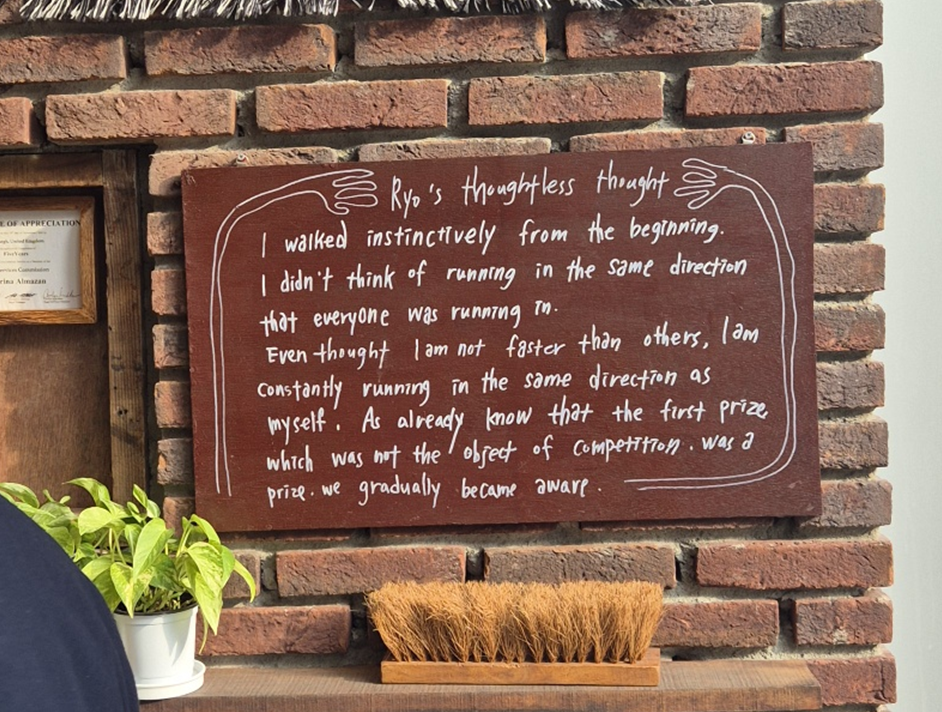 Ryo's thoughtless thought
I walked instinctively from the beginning.
I didn't think of running in the same direction
that everyone was running in.
Even thought I am not faster than others, I am
constantly running in the same direction as
myself. As already know that the first prize,
which was not the object of competition. was a
prize. we gradually became aware.
E OF APPRECIATION
United Kingdom
Five Years
Commission
rino Almazan